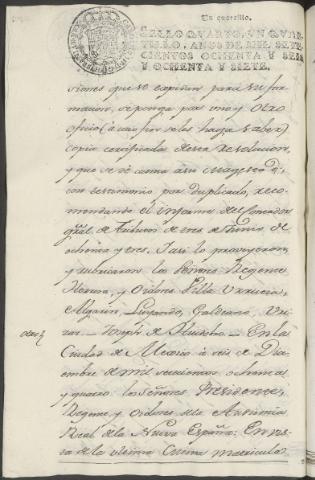 Un quartillo.
SELLO QUARTO, UN QVAR-
TILLO, AÑOS DE MIL SETE-
CIENTOS OCHENTA Y SEIS
Y OCHENTA Y SIETE.
ciones que se expidan para su for-
macion, se ponga por uno y otro
oficio (à cuio fin se les haga saber)
copia certificada de esta resolucion,
y que se dè cuenta à su Magestad
con testimonio por duplicado, reco-
mendando el informe del Contador
gral de tributos de tres de Junio de
ochenta y tres. Y asi lo proveyeron,
y rubricaron los Señores Regente
Herrera, y Oidores Villa Urrutia,
Algarin, Luyando, Galdeano,
Joseph de En la
Ciudad de Mexico à seis de Dici-
embre de mil setecientos ochenta
y quatro los Señores Presidente,
Regente y Oidores de la Audiencia
Real de la Nueva España: En vis-
ta de la ultima matricula